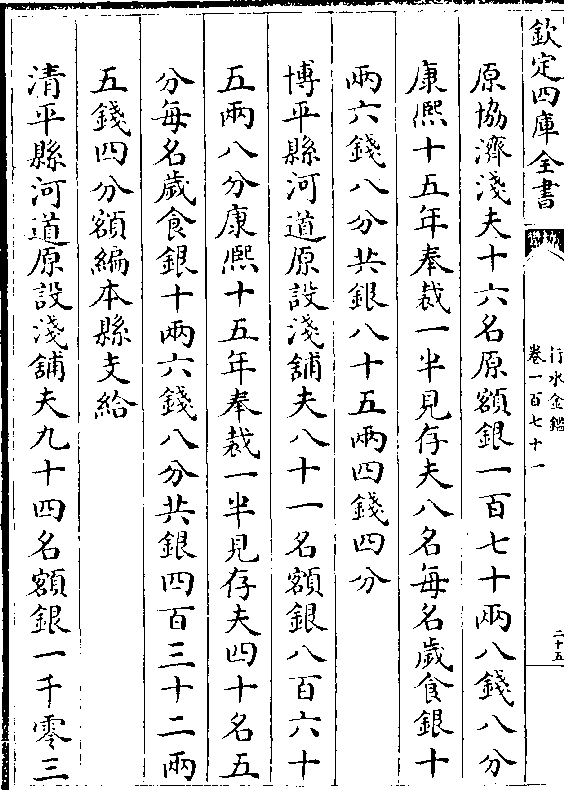 欽定四庫全書
行水金鑑
卷一百七十一
二十五
原協濟淺夫十六名原額銀一百七十兩八錢八分
康熙十五年奉裁一半見存夫八名每名歲食銀十
兩六錢八分共銀八十五兩四錢四分
博平縣河道原設淺舖夫八十一名額銀八百六十
五兩八分康熙十五年奉裁一半見存夫四十名五
分每名歲食銀十兩六錢八分共銀四百三十二兩
五錢四分額編本縣支給
清平縣河道原設淺舖夫九十四名額銀一千零三